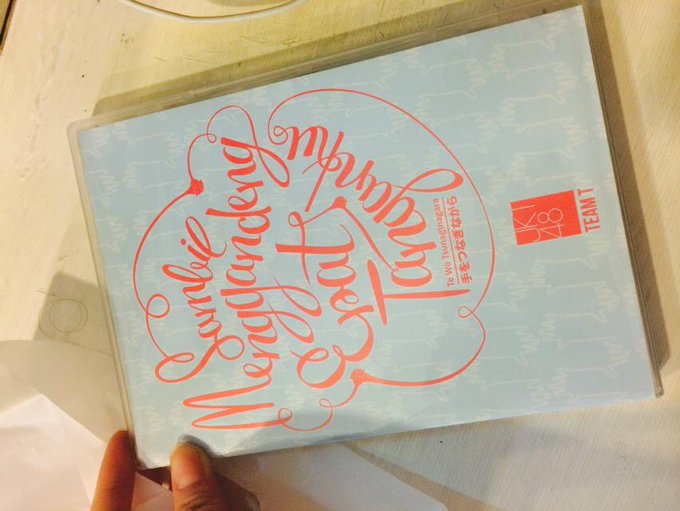 Sambil
Menggandeng
Erat
Tanganku
Te Wo Tsunaginagara
手をつなぎながら
JKT
48
TEAM T